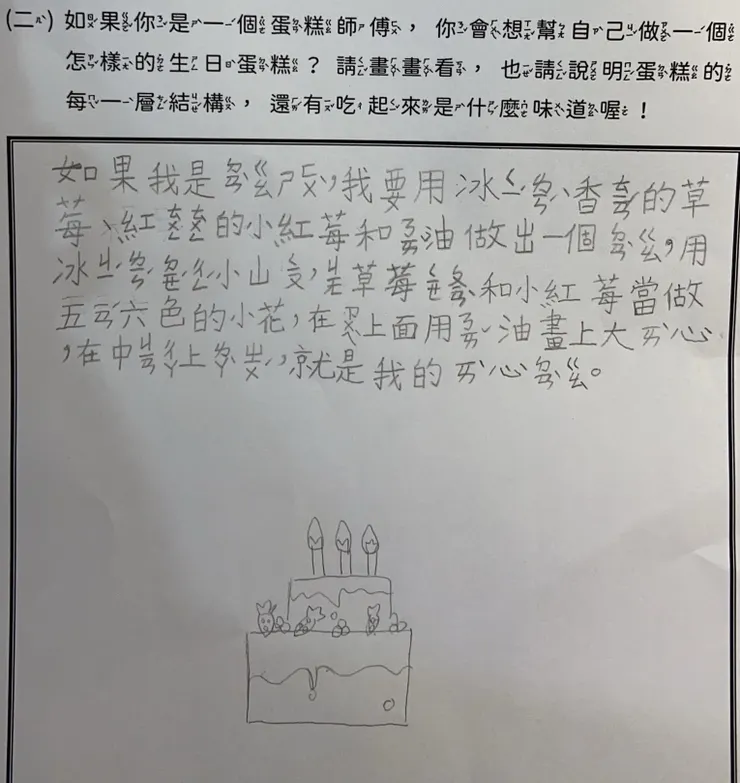 (二) 如果你是一個蛋糕師傅，你會想幫自己做一個
怎樣的生日蛋糕？請畫畫看，也請說明蛋糕的
每一層結構，還有吃起來是什麼味道喔！
如果我是ㄉㄢˋㄍㄠ ㄕㄈㄨˋ，我要用冰ㄑㄧˊㄌㄧㄣˊ、香ㄊㄧㄢˊ的草
莓、紅ㄊㄨㄥㄊㄨㄥ的小紅莓和ㄋㄞˇ油做出一個ㄉㄢˋㄍㄠ，用
冰
小山
草莓
和小紅莓當做
五ㄧㄢˊ六色的小花，在
上面用ㄋㄞˇ油畫上大ㄞˋ心
，在中ㄐㄧㄢ
上
，就是我的ㄞˋ心ㄉㄢˋㄍㄠ。